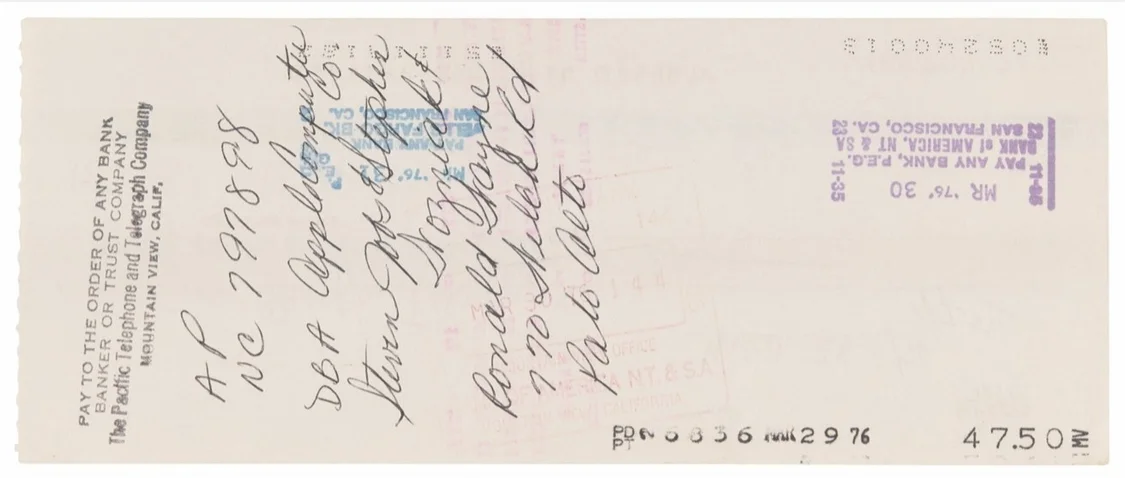 PAY TO THE ORDER OF ANY BANK
BANKER OR TRUST COMPANY
The Pacific Telephone and Telegraph Company
MOUNTAIN VIEW, CALIF.
A P
NC 797898
DBA Apple Computer
Co.
Steven Jobs & Stephen
Wozniak &
Ronald Wayne
770
Palo Alto
MR '76
PAY ANY BANK
SAN FRANCISCO, CA.
11-35
MR '76 30
PAY ANY BANK, P.E.G.
BANK of AMERICA, NT & SA
SAN FRANCISCO, CA. 23
11-35
OFFICE
AMERICA N.T. & S.A.
CALIFORNIA
PD
PT
6836 MAR 29 76
47.50 MV